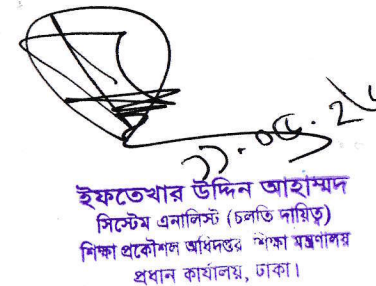 ইফতেখার উদ্দিন আহাম্মদ
সিস্টেম এনালিস্ট (চলতি দায়িত্ব)
শিক্ষা প্রকৌশল অধিদপ্তর শিক্ষা মন্ত্রণালয়
প্রধান কার্যালয়, ঢাকা।